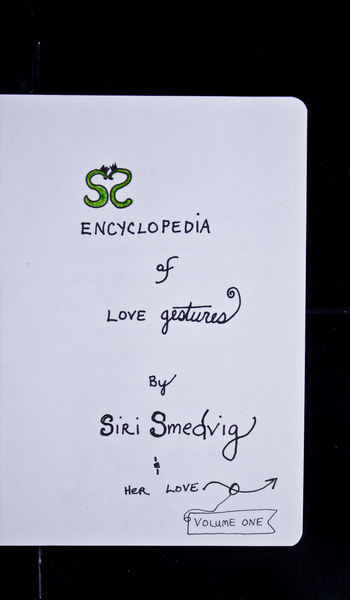 SS
ENCYCLOPEDiA
of
LOVE gestures
By
SiRi Smedvig
&
HER LOVE
VOLUME ONE